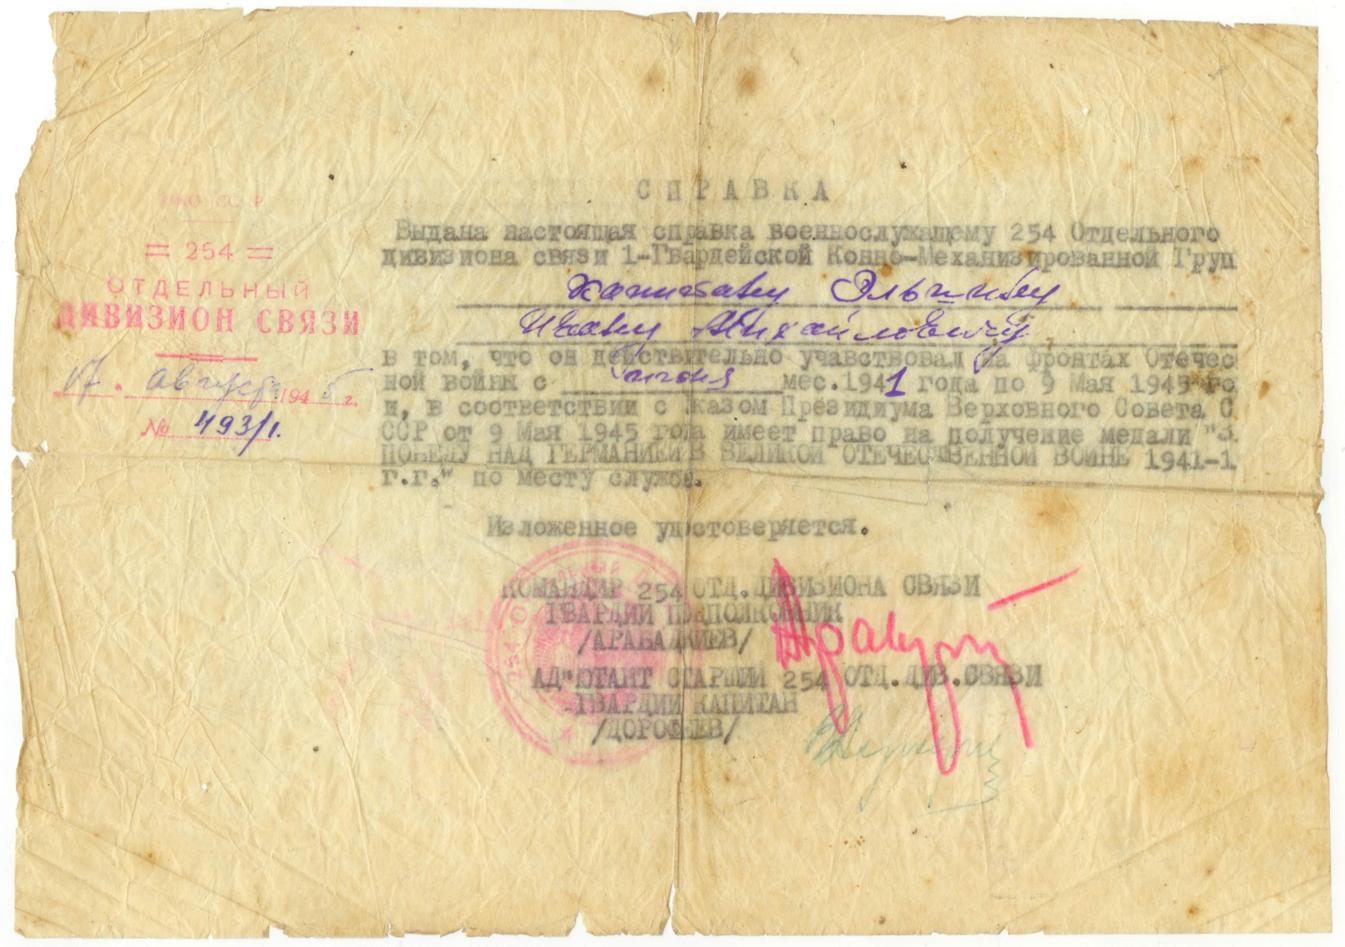 СПРАВКА
Выдана настоящая справка военнослужащему 254 Отдельного
дивизиона связи 1-Гвардейской Конно-Механизированной Груп
Ивану Михайловичу
в том, что он действительно учавствовал на фронтах Отечес
ной войны с июня мес. 1941 года по 9 Мая 1945 го
и, в соответствии с казом Президиума Верховного Совета С
ССР от 9 Мая 1945 года имеет право на получение медали "З
ПОБЕДУ НАД ГЕРМАНИЕЙ В ВЕЛИКОЙ ОТЕЧЕСТВЕННОЙ ВОЙНЕ 1941-1
г.г." по месту службы.
Изложенное удстоверяется.
НКО СССР
= 254 =
ОТДЕЛЬНЫЙ
ДИВИЗИОН СВЯЗИ
17. августа 1945 г.
№ 493/1.
КОМАНДИР 254 ОТД. ДИВИЗИОНА СВЯЗИ
ГВАРДИИ ПОДПОЛКОВНИК
/АРАБАДЖИЕВ/
АД"ЮТАНТ СТАРШИЙ 254 ОТД.ДИВ.СВЯЗИ
ГВАРДИИ КАПИТАН
/ДОРОФЕЕВ/